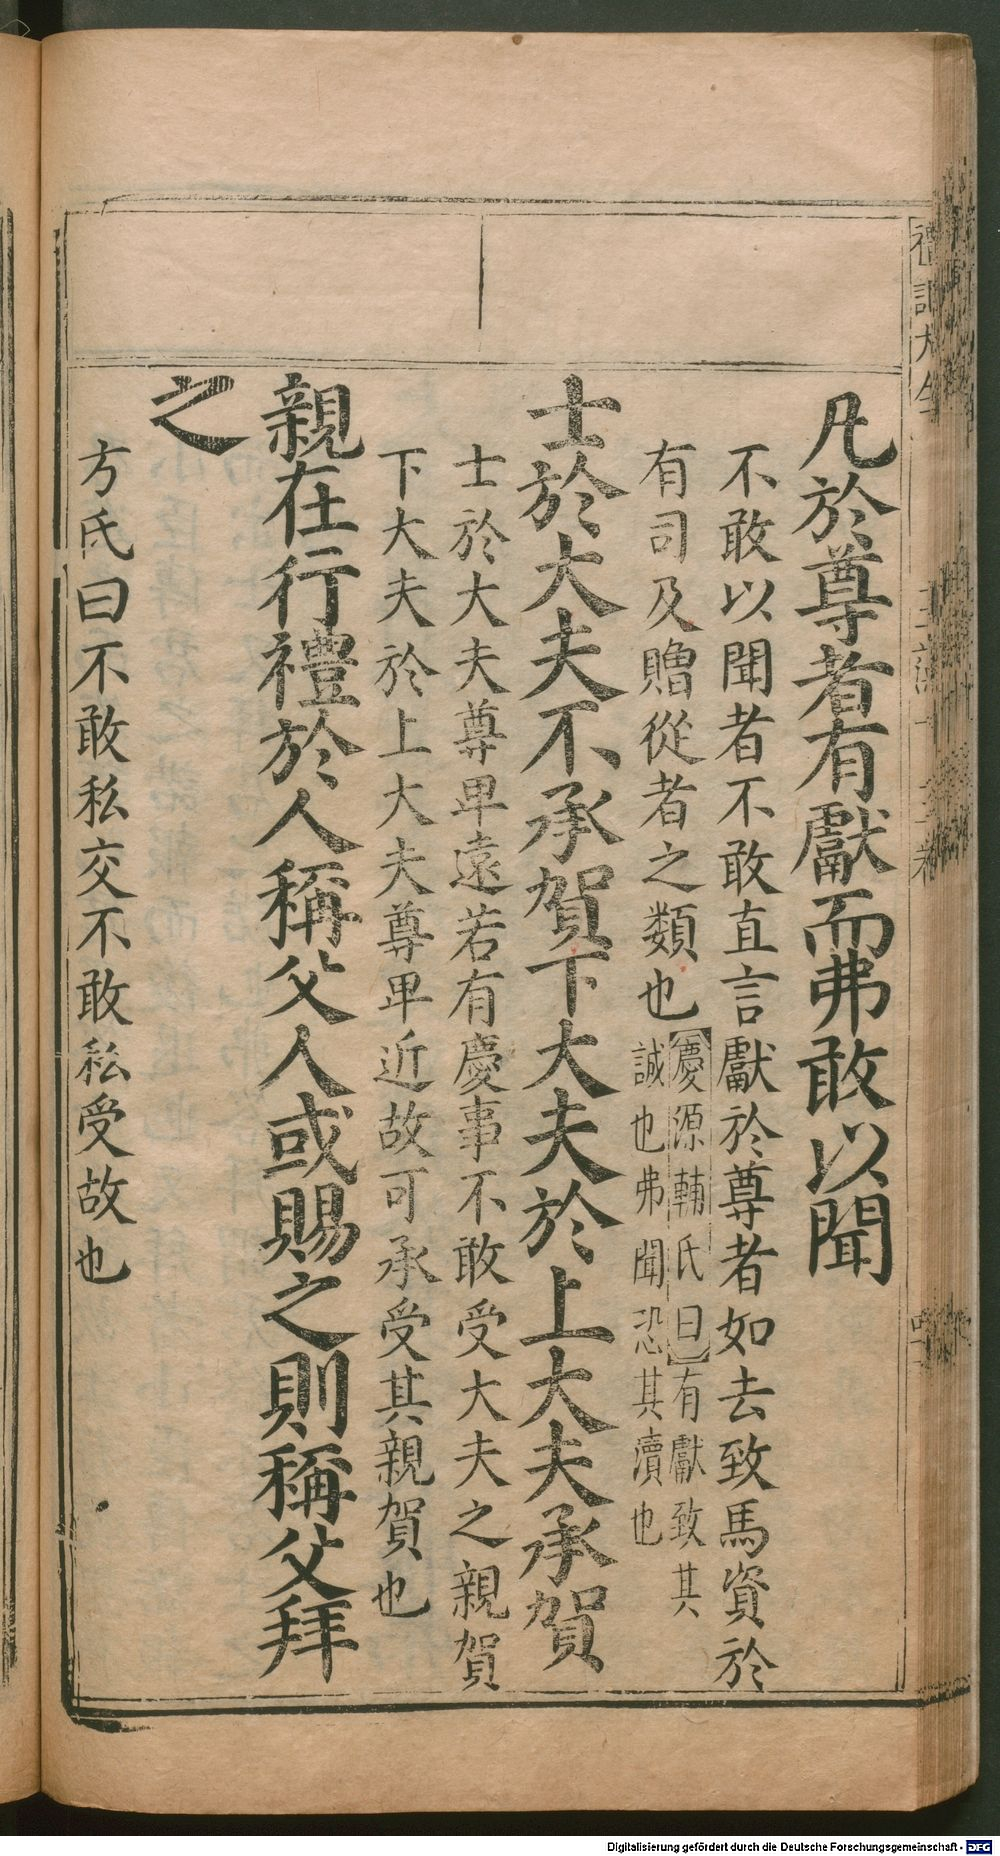 凡於尊者有獻而弗敢以聞
不敢以聞者不敢直言獻於尊者如去致馬資於
有司及贈從者之類也
慶源輔氏曰有獻致其
誠也弗聞恐其瀆也
士於大夫不承賀下大夫於上大夫承賀
士於大夫尊卑遠若有慶事不敢受大夫之親賀
下大夫於上大夫尊卑近故可承受其親賀也
親在行禮於人稱父人或賜之則稱父拜
之
方氏曰不敢私交不敢私受故也
禮記大全
Digitalisierung gefördert durch die Deutsche Forschungsgemeinschaft - DFG